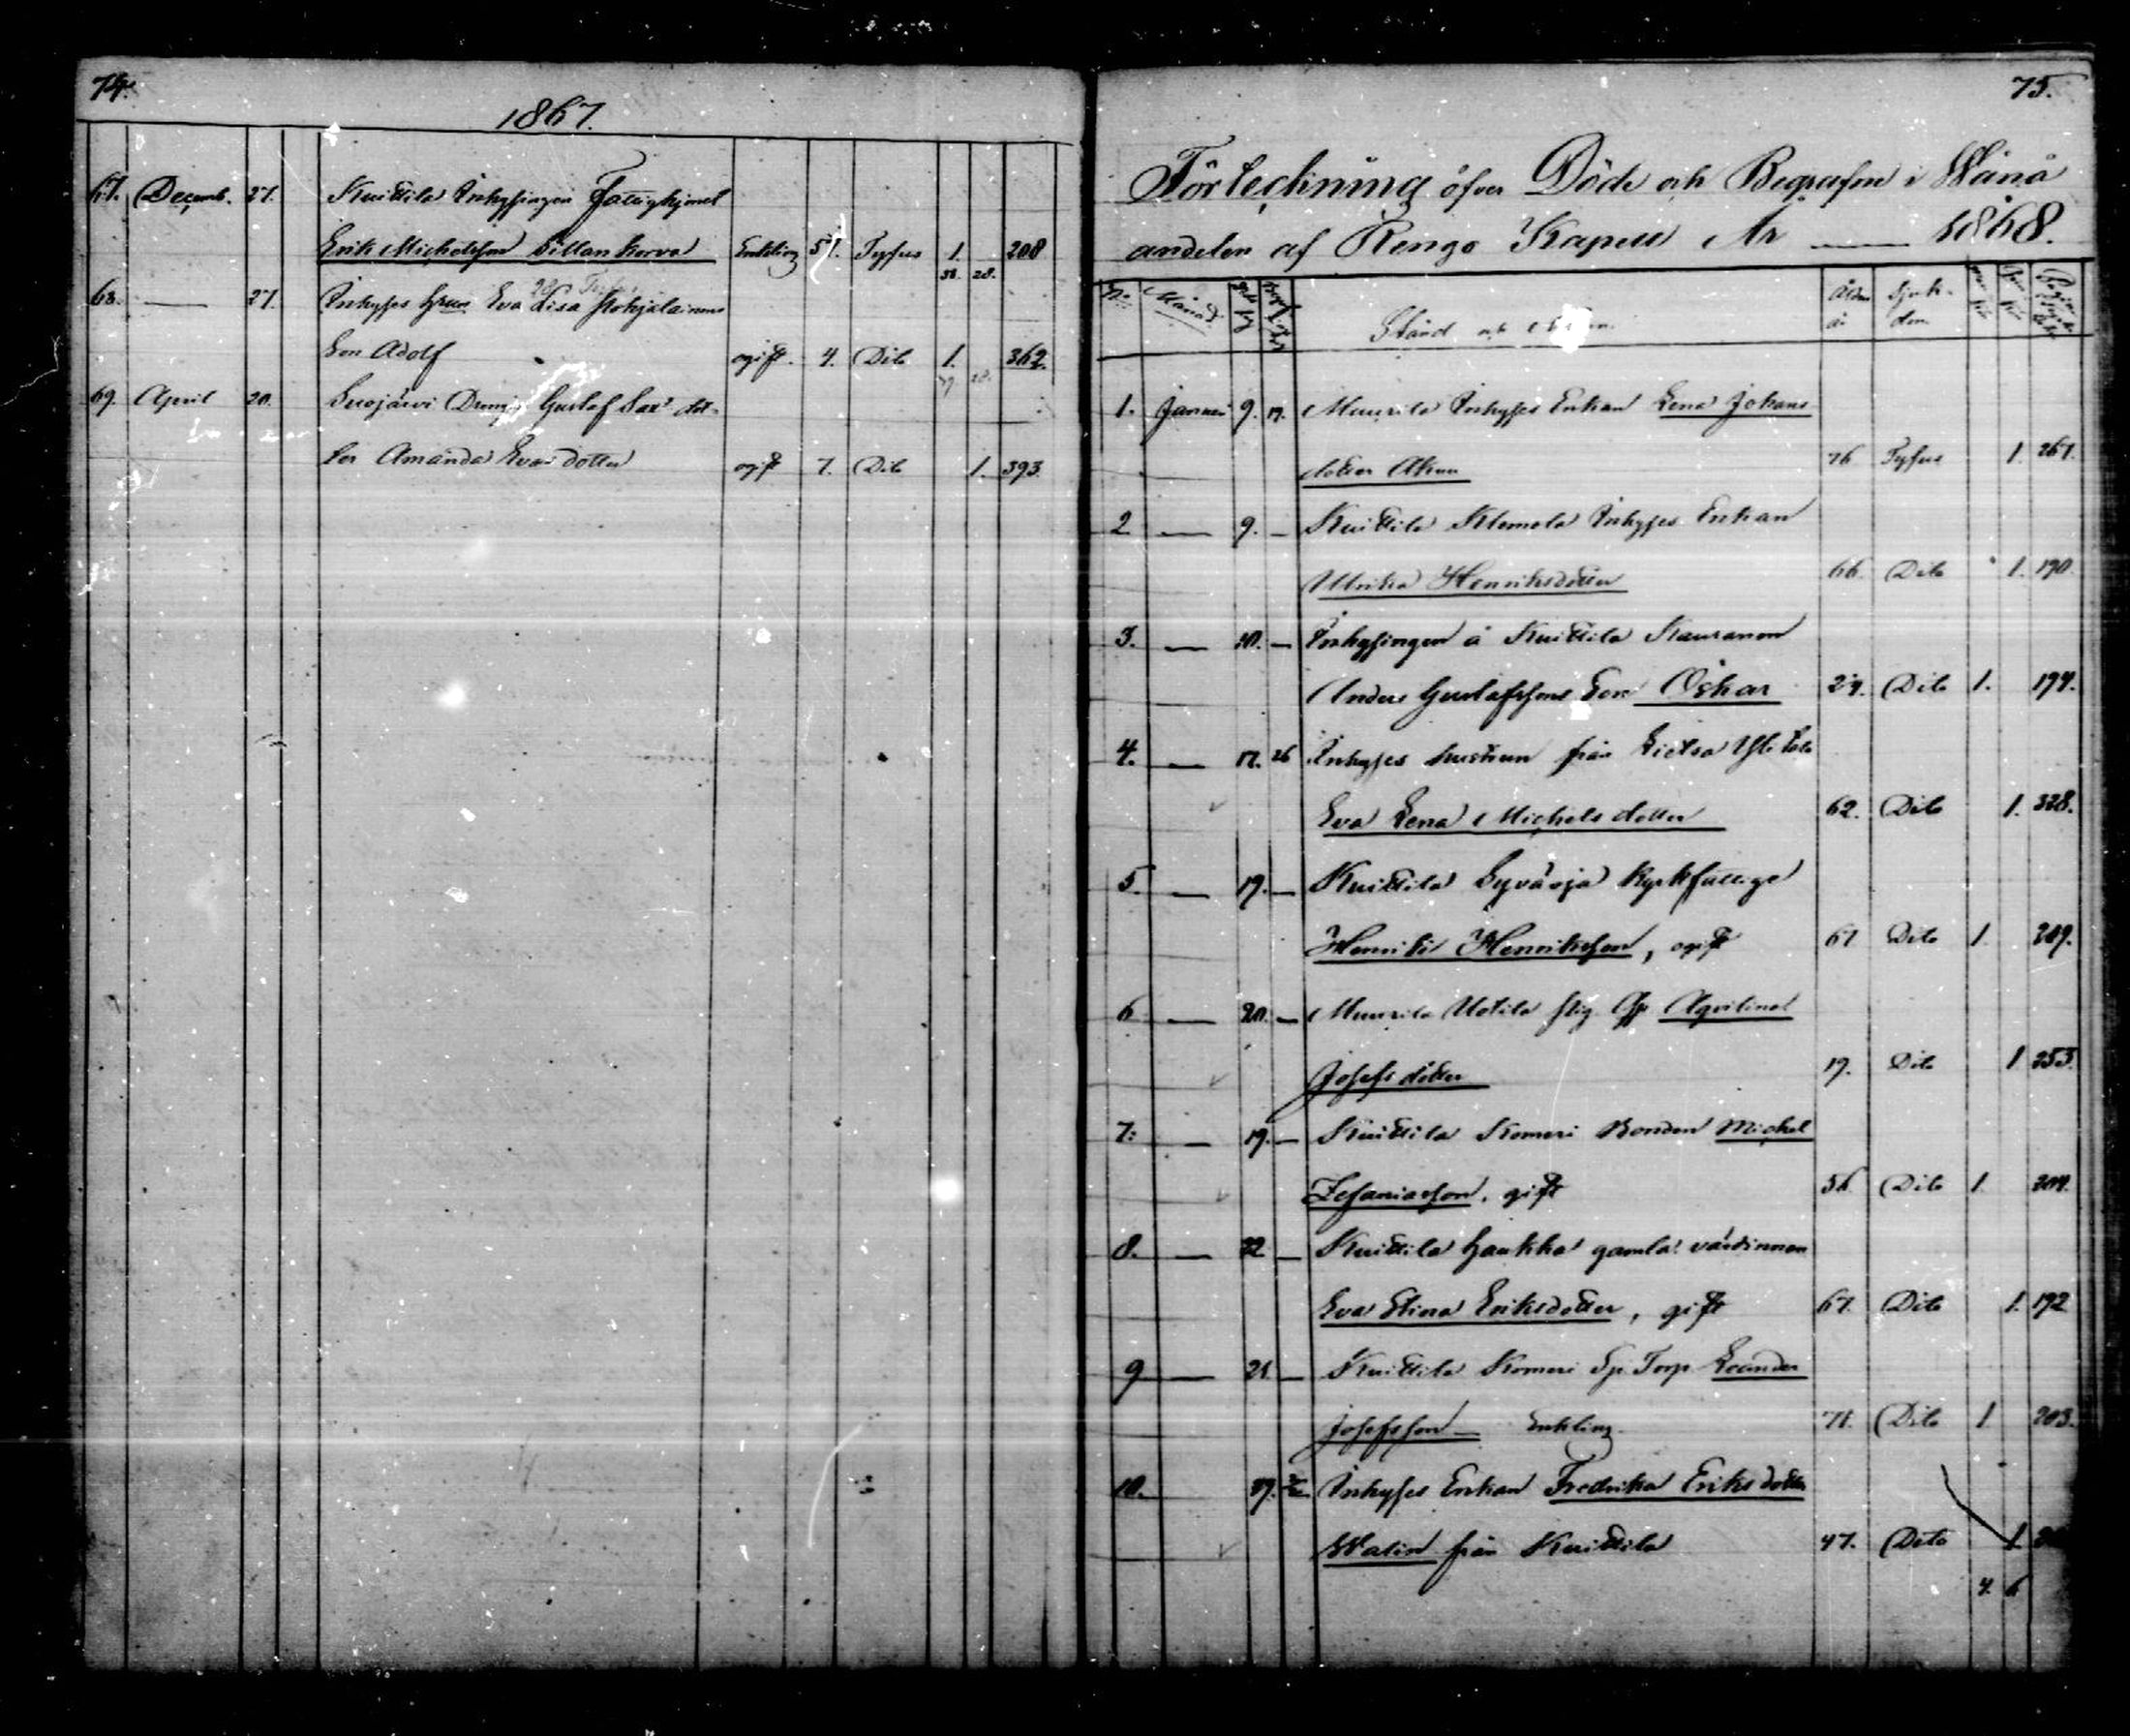 74.
1867.
67. Decemb. 27. Kuittila Inhysingen Fattighjonet
Erik Michelsson Sillankorva Enkling 57. Tyfus 1. 208
38. 28.
68. — 27. Inhyses hrun Eva Lisa Pohjalainens
Son Adolf ogift. 4. Dito 1. 362.
39. 28.
69. April 20. Suojärvi Dreng Gustaf Sax' dot-
ter Amanda Evas dotter ogift 7. Dito 1. 393.
75.
Förteckning öfver Döde och Begrafne i Wånå
andelen af Rengo Kapell År — 1868.
No Månad Stånd och Ålder år Sjuk-dom
1. Januari 9. 19. Muurila Inhyses Enkan Lena Johans
dotter 76 Tyfus 1. 267.
2 — 9. — Kuittila Klemola Inhyses Enkan
Ulrika Henriksdotter 66. Dito 1. 190.
3. — 10. — Inhysingen å Kuittila Kauranen
Anders Gustafssons Son Oskar 24. Dito 1. 194.
4. — 17. 26 Inhyses hustrun från Lietsa
Eva Lena Michels dotter 62. Dito 1. 328.
5. — 19. — Kuittila Syväoja Kyrkfattige
Henrik Henriksson, ogift 67 Dito 1. 209.
6 — 20. — Muurila Uotila Aqvilina
Josefs dotter 19. Dito 1 253.
7. — 19. — Kuittila Komeri Bonden Michel
Zefaniasson, gift 56 Dito 1 204.
8. — 22 — Kuittila Haukka gamla värdinnan
Eva Stina Eriksdotter, gift 67. Dito 1. 192
9 — 21. — Kuittila Komeri Sp. Torp. Leander
Josefsson — Enkling. 71. Dito 1 203.
10. 19. Inhyses Enkan Fredrika Eriks dotter
Walin från Kuittila 47. Dito 1.
4. 6